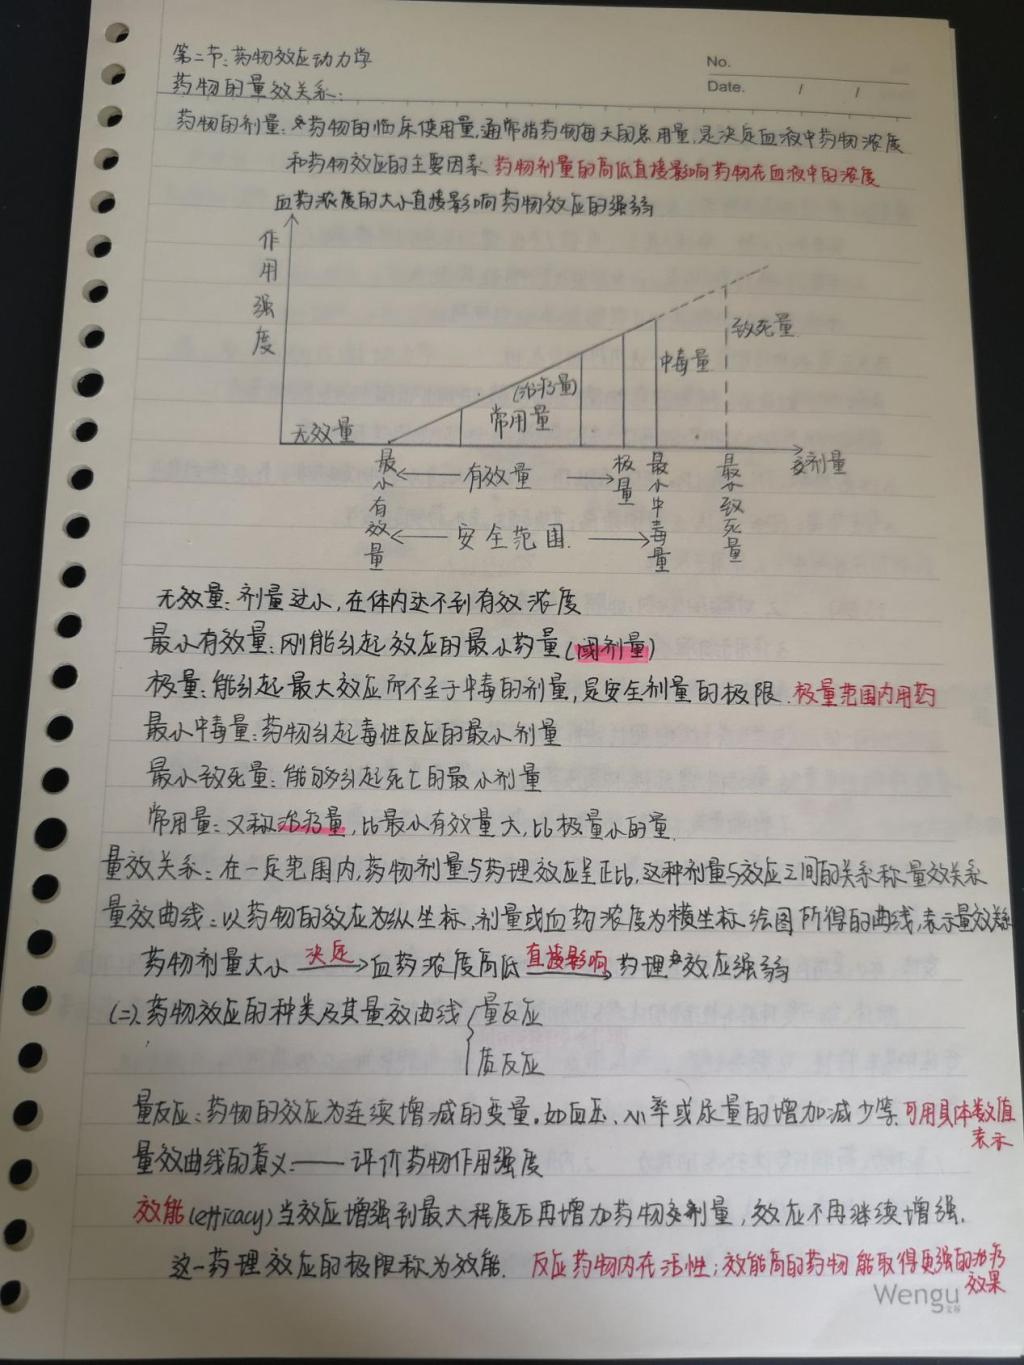 第二节:药物效应动力学
No.
药物的量效关系:
Date. / /
药物的剂量:药物的临床使用量,通常指药物每天的总用量,是决定血液中药物浓度
和药物效应的主要因素 药物剂量的高低直接影响药物在血液中的浓度
血药浓度的大小直接影响药物效应的强弱
作用强度
致死量
中毒量
(治疗量)
常用量
无效量
剂量
最小有效量
有效量
极量
最小中毒量
最小致死量
安全范围
无效量:剂量过小,在体内达不到有效浓度
最小有效量:刚能引起效应的最小药量(阈剂量)
极量:能引起最大效应而不至于中毒的剂量,是安全剂量的极限.极量范围内用药
最小中毒量:药物引起毒性反应的最小剂量
最小致死量:能够引起死亡的最小剂量
常用量:又称治疗量,比最小有效量大,比极量小的量.
量效关系:在一定范围内,药物剂量与药理效应呈正比,这种剂量与效应之间的关系称量效关系
量效曲线:以药物的效应为纵坐标,剂量或血药浓度为横坐标绘图所得的曲线,表示量效关系
药物剂量大小 决定 血药浓度高低 直接影响 药理效应强弱
(二).药物效应的种类及其量效曲线 量反应
质反应
量反应:药物的效应为连续增减的变量.如血压、心率或尿量的增加减少等.可用具体数值
表示
量效曲线的意义:——评价药物作用强度
效能(efficacy)当效应增强到最大程度后再增加药物剂量,效应不再继续增强.
这一药理效应的极限称为效能. 反应药物内在活性;效能高的药物能取得更强的治疗
效果
Wengu